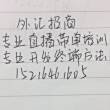 外汇招商
专业直播带单培训
专业开发终端方法
15216461605